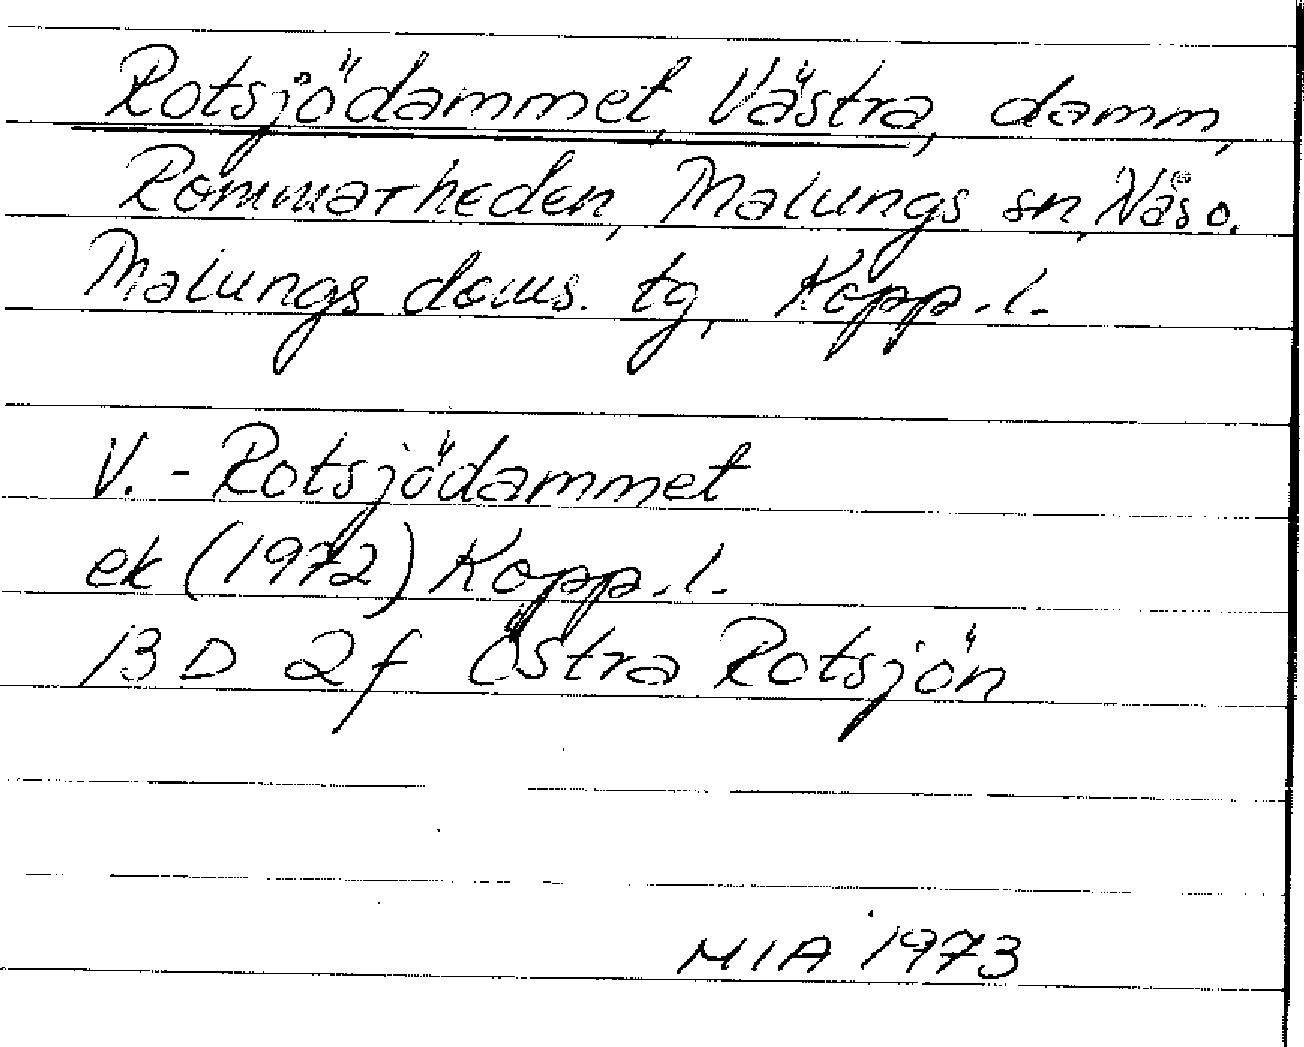 Rotsjödammet, Västra, damm,
Rommarheden, Malungs sn, Näs o.
Malungs doms. tg, Kopp.l.
V.- Rotsjödammet
ek (1972) Kopp.l.
13 D 2f Östra Rotsjön
MIA 1973